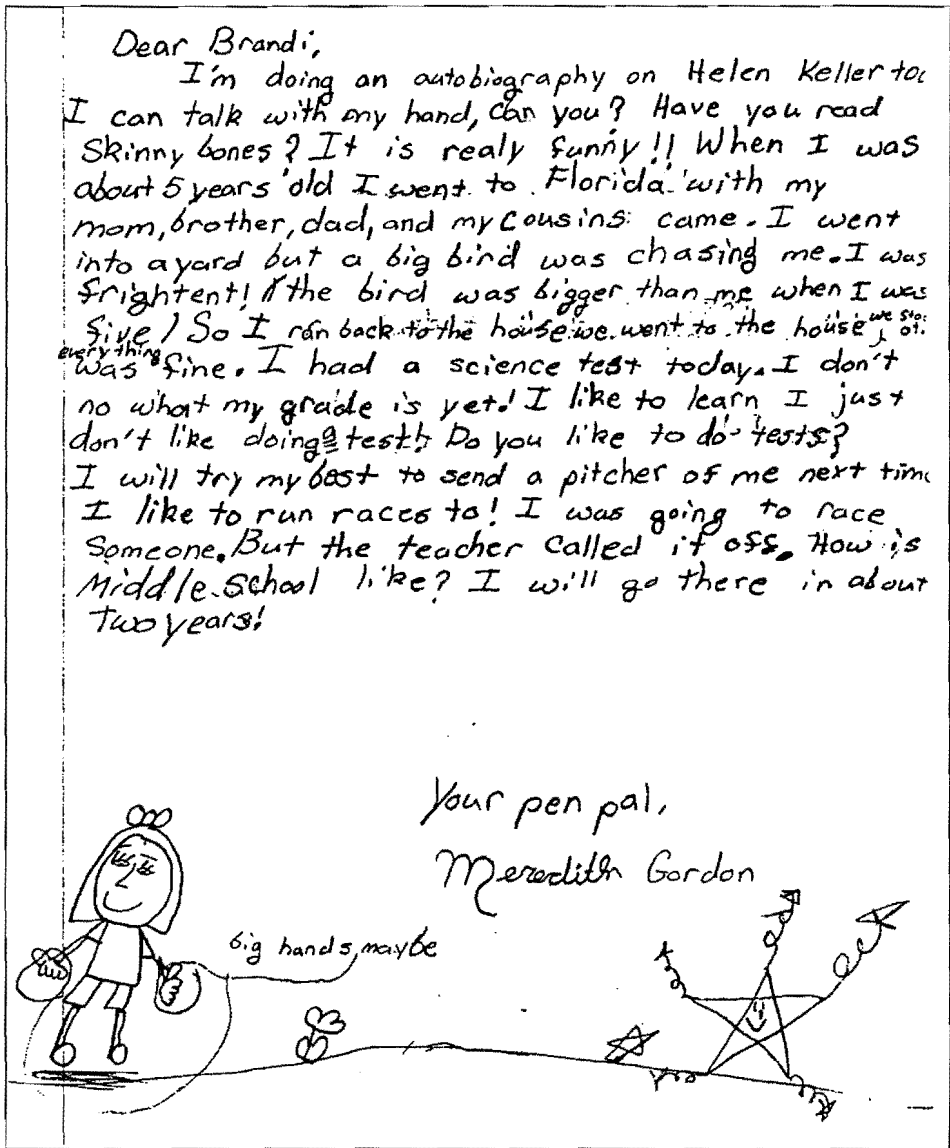 Dear Brandi,
I'm doing an autobiography on Helen Keller too
I can talk with my hand, can you? Have you read
Skinny bones? It is realy funny!! When I was
about 5 years old I went to Florida with my
mom, brother, dad, and my cousins came. I went
into a yard but a big bird was chasing me. I was
frightent! (the bird was bigger than me when I was
five) So I ran back to the house we went to the house we
everything
was fine. I had a science test today. I don't
no what my grade is yet! I like to learn I just
don't like doing a test! Do you like to do tests?
I will try my best to send a pitcher of me next time
I like to run races to! I was going to race
someone. But the teacher called it off. How is
Middle School like? I will go there in about
Two years!
Your pen pal,
Meredith Gordon
big hands, maybe